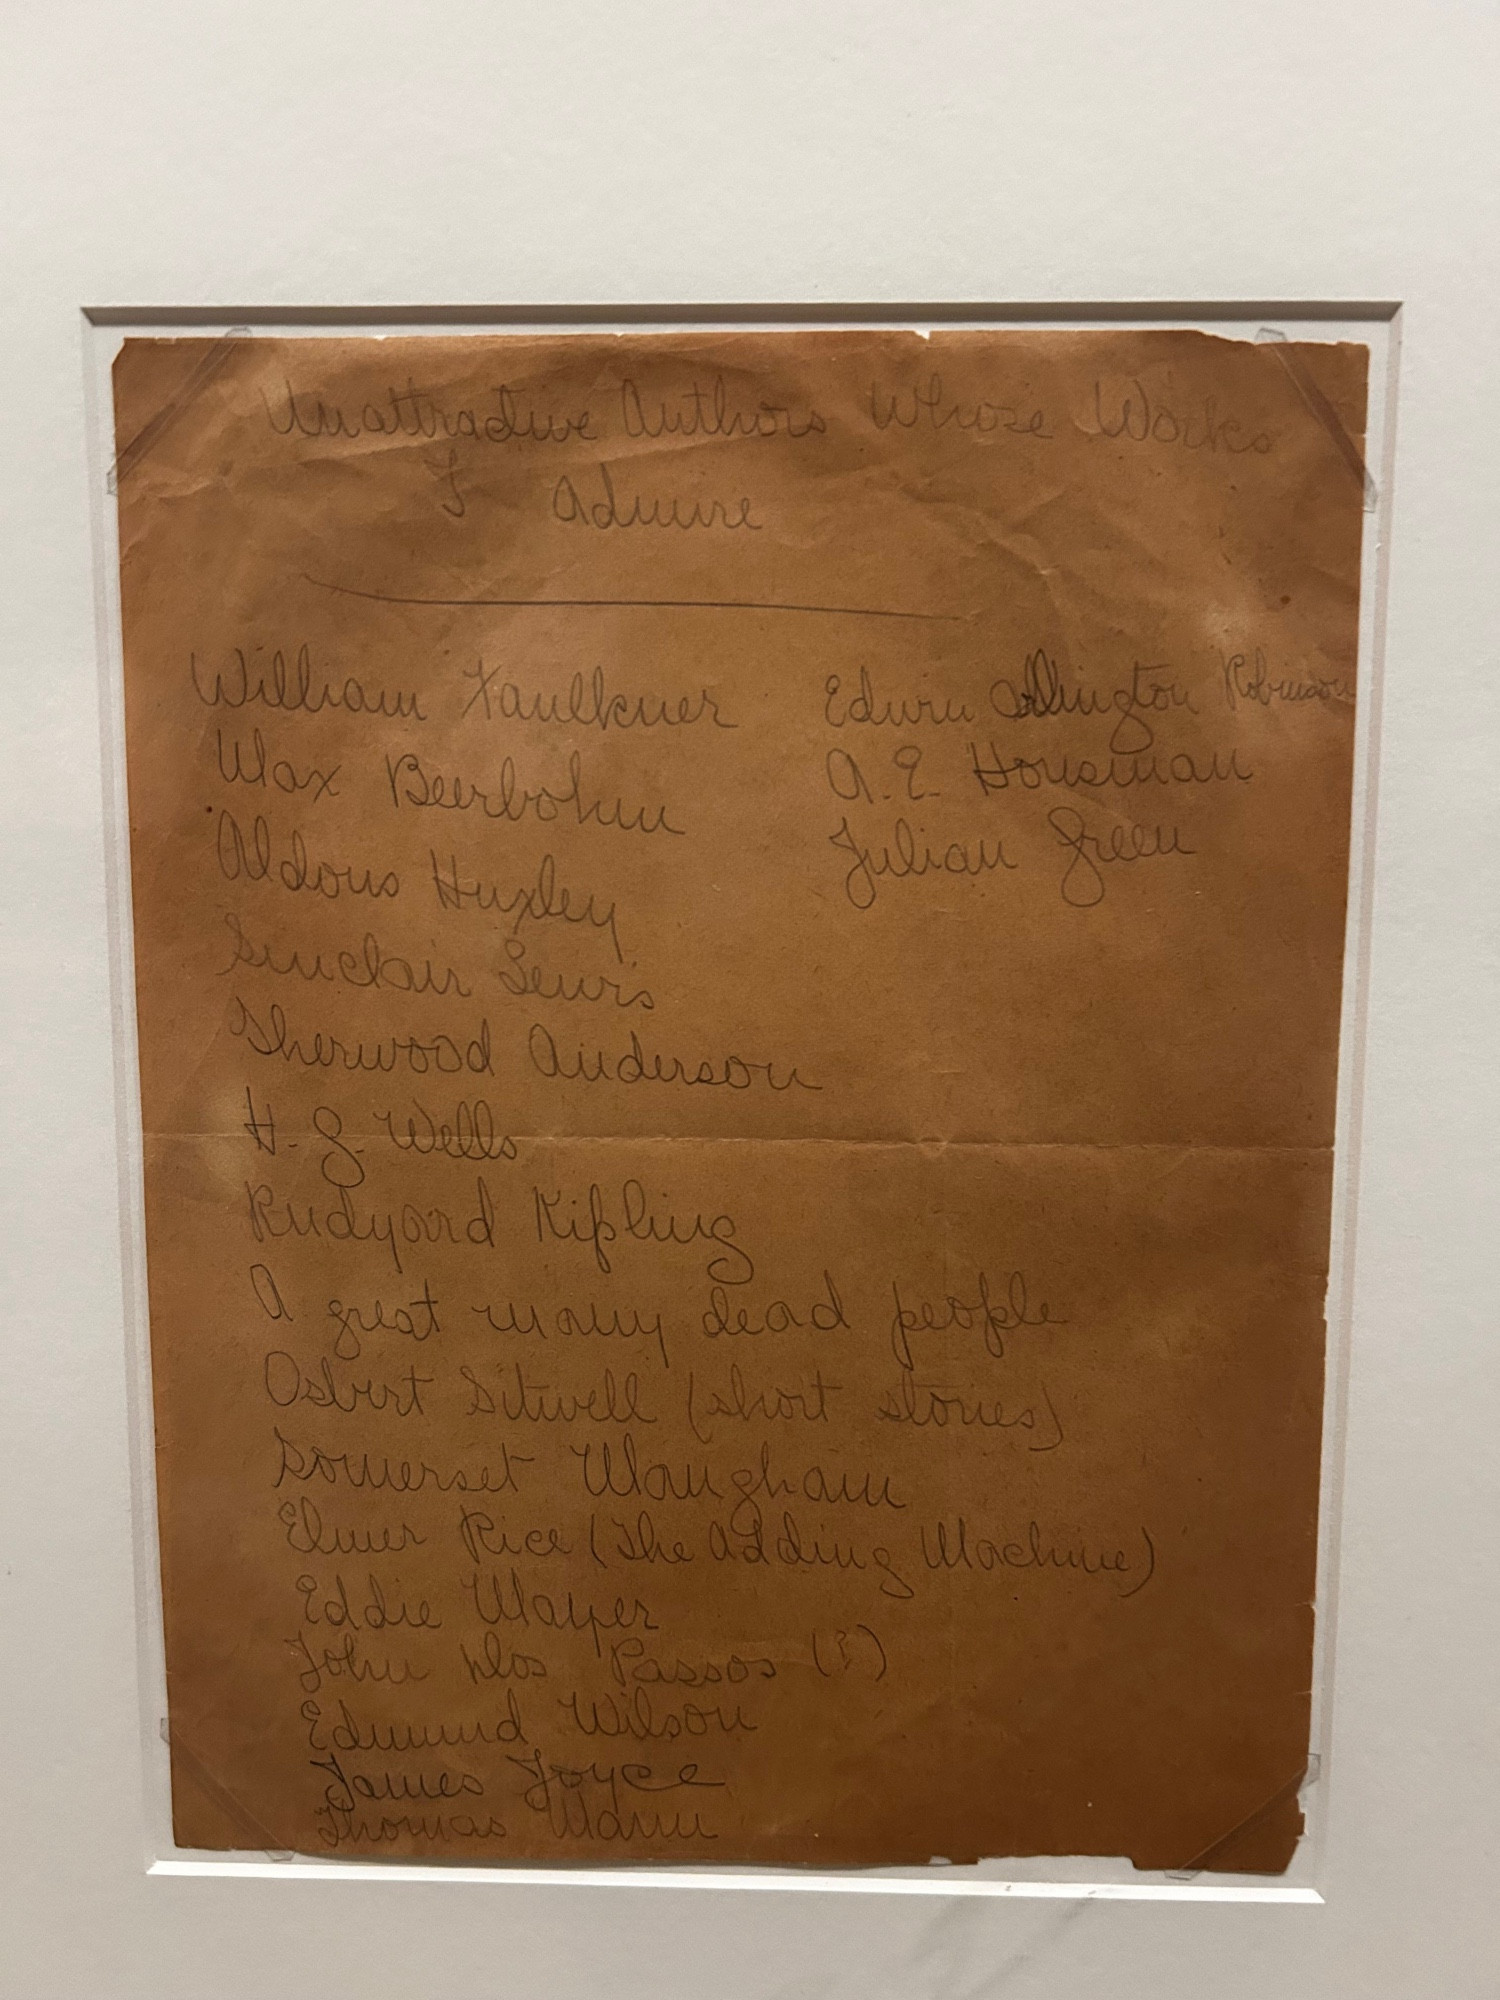 Unattractive Authors Whose Works
I Admire
William Faulkner
Max Beerbohm
Aldous Huxley
Sinclair Lewis
Sherwood Anderson
H. G. Wells
Rudyard Kipling
A great many dead people
Osbert Sitwell (short stories)
Somerset Maugham
Elmer Rice (The Adding Machine)
Eddie Mayer
John Dos Passos (?)
Edmund Wilson
James Joyce
Thomas Mann
Edwin Arlington Robinson
A. E. Housman
Julian Green